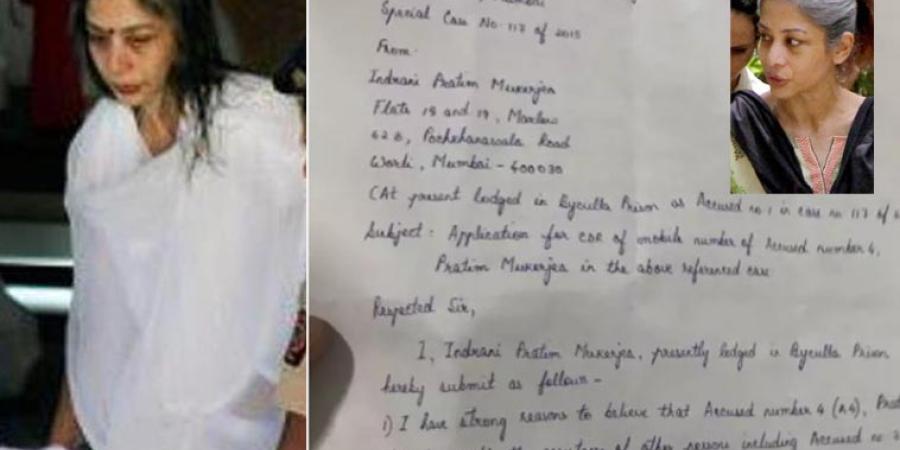 Special Case No 117 of 2015
From
Indrani Pratim Mukerjea
Flats 18 and 19, Marlow
62 B, Pochkhanawala Road
Worli, Mumbai - 400030
(At present lodged in Byculla Prison as Accused no 1 in case no 117 of
Subject : Application for CDR of mobile number of Accused number 4,
Pratim Mukerjea in the above referenced case
Respected Sir,
I, Indrani Pratim Mukerjea, presently lodged in Byculla Prison
hereby submit as follows -
1) I have strong reasons to believe that Accused number 4 (A4),
of other persons including Accused no